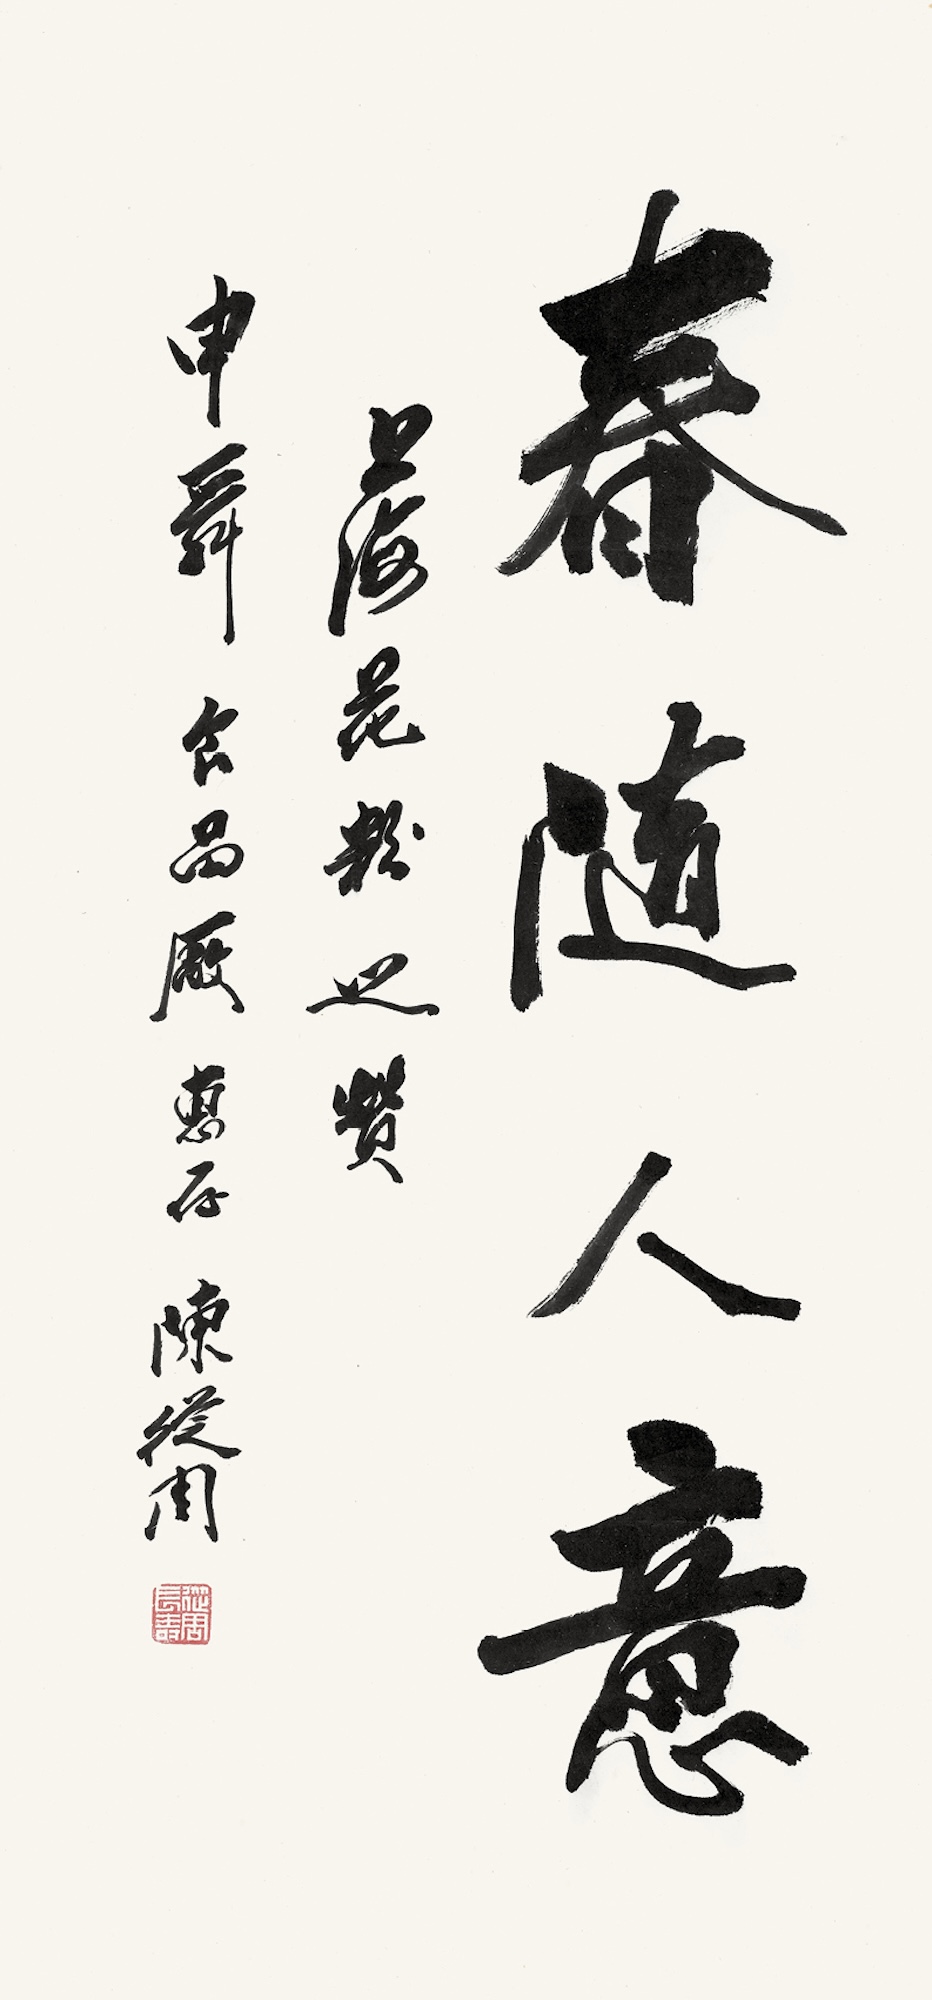 春随人意
上海花粉之赞
申舜食品厰惠存 陳從周
從周長壽